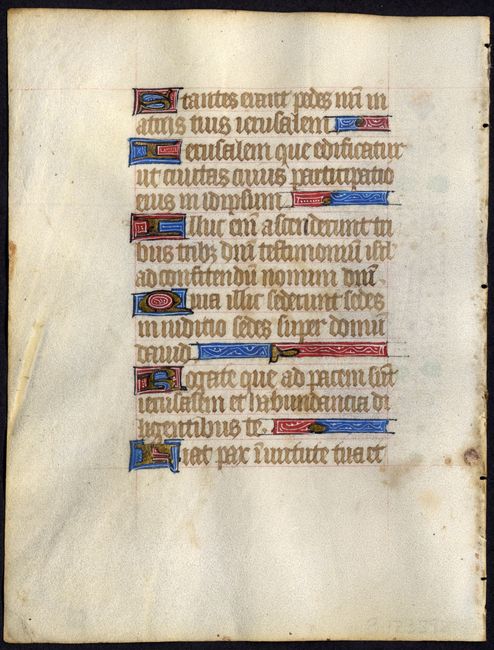 Stantes erant pedes nr̄i in
atriis tuis ierusalem
Ierusalem que edificatur
ut ciuitas cuius participatio
eius in idipsum
Illuc em̄ ascenderunt tri
bus tribꝫ dn̄i testimonium isrl̄
ad confitendū nomini dn̄i
Quia illic sederunt sedes
in iuditio sedes super domū
dauid
Rogate que ad pacem sūt
ierusalem et habundancia di
ligentibus te
Fiat pax ī uirtute tua et